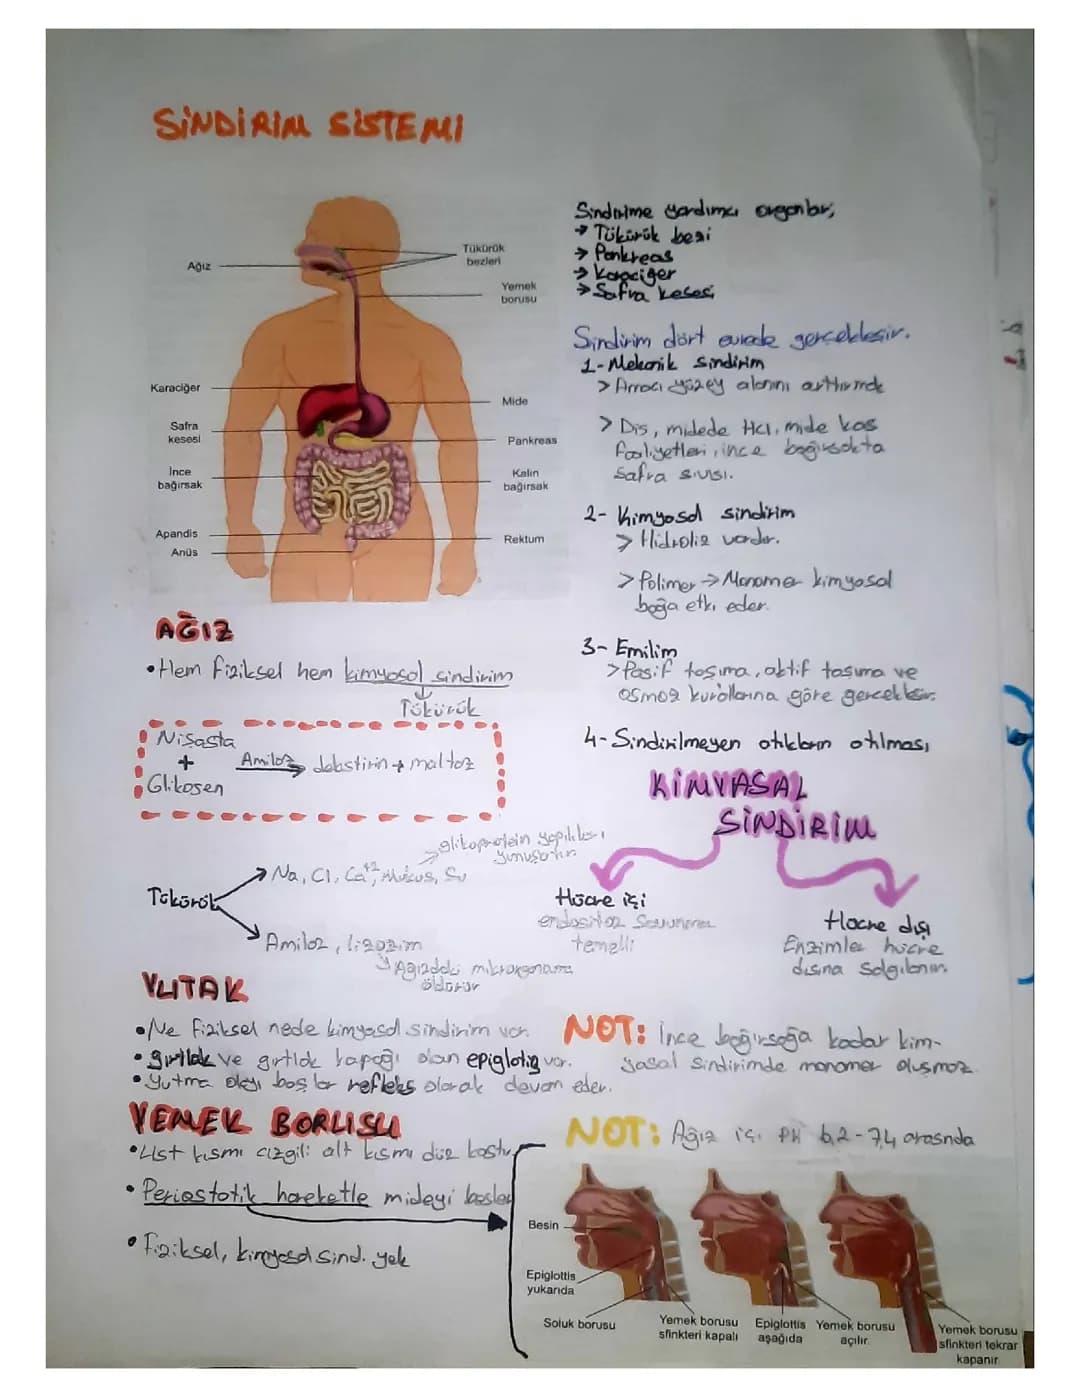 SİNDİRİM SİSTEMİ
Ağız
Tükürük
bezleri
Yemek
borusu
Karaciğer
Mide
Safra
kesesi
Pankreas
İnce
bağırsak
Kalın
bağırsak
Apandis
Rektum
Anüs
Sindirime yardımcı organlar;
→ Tükürük bezi
→ Pankreas
→ Karaciğer
→ Safra kesesi
Sindirim dört evrede gerçekleşir.
1- Mekanik sindirim
> Amacı yüzey alanını arttırmak
> Diş, midede HCl, mide kas
faaliyetleri, ince bağırsakta
safra sıvısı.
2- Kimyasal sindirim
> Hidroliz vardır.
> Polimer → Monomer kimyasal
bağa etki eder.
3- Emilim
> Pasif taşıma, aktif taşıma ve
osmoz kurallarına göre gerçekleşir.
4- Sindirilmeyen atıkların atılması
AĞIZ
• Hem fiziksel hem kimyasal sindirim
↓
Tükürük
Nişasta
+
Glikojen
Amilaz → dekstirin + maltoz
Tükürük
→ Na, Cl, Ca+2, Mukus, Su
→ glikoprotein yapılıları
yumuşatır
→ Amilaz, lizozim
↳ Ağızdaki mikroorganizma
öldürür
KİMYASAL
SİNDİRİM
Hücre içi
endositoz savunma
temelli
Hücre dışı
Enzimler hücre
dışına salgılanır.
YUTAK
• Ne fiziksel nede kimyasal sindirim var.
• gırtlak ve gırtlak kapağı olan epiglotis var.
• Yutma olayı başlar refleks olarak devam eder.
NOT: İnce bağırsağa kadar kim-
yasal sindirimde monomer oluşmaz.
YEMEK BORUSU
• Üst kısmı çizgili alt kısmı düz kastır
• Periostatik hareketle mideyi besler
• Fiziksel, kimyasal sind. yok
NOT: Ağız içi PH 6,2-7,4 arasında
Besin
Epiglottis
yukarıda
Soluk borusu
Yemek borusu
sfinkteri kapalı
Epiglottis
aşağıda
Yemek borusu
açılır.
Yemek borusu
sfinkteri tekrar
kapanır